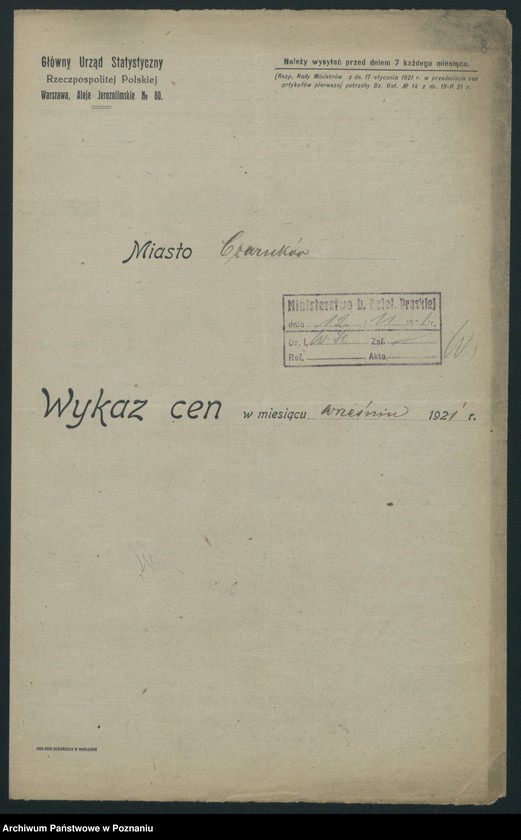 8
Główny Urząd Statystyczny
Rzeczpospolitej Polskiej
Warszawa, Aleje Jerozolimskie № 80.
Należy wysyłać przed dniem 7 każdego miesiąca.
(Rozp. Rady Ministrów z dn. 17 stycznia 1921 r. w przedmiocie cen
artykułów pierwszej potrzeby Dz. Ust. № 14 z dn. 19-II 21 r.
Miasto Czarnków
Ministerstwo b. Dziel. Pruskiej
dnia 12 11
Dz. I. Zał.
Ref. Akta
Wykaz cen w miesiącu wrześniu 1921 r.
Archiwum Państwowe w Poznaniu